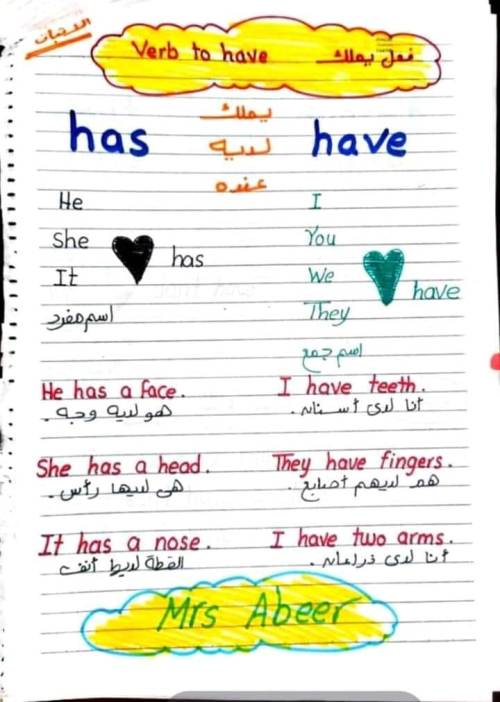 الاثبات
Verb to have فعل يملك
has يملك have
لديه
عنده
He I
She has You
It We have
اسم مفرد They
اسم جمع
He has a face. I have teeth.
هو لديه وجه. أنا لدى أسنان.
She has a head. They have fingers.
هى لديها رأس. هم لديهم أصابع.
It has a nose. I have two arms.
القطة لديها أنف أنا لدى ذراعان.
Mrs Abeer